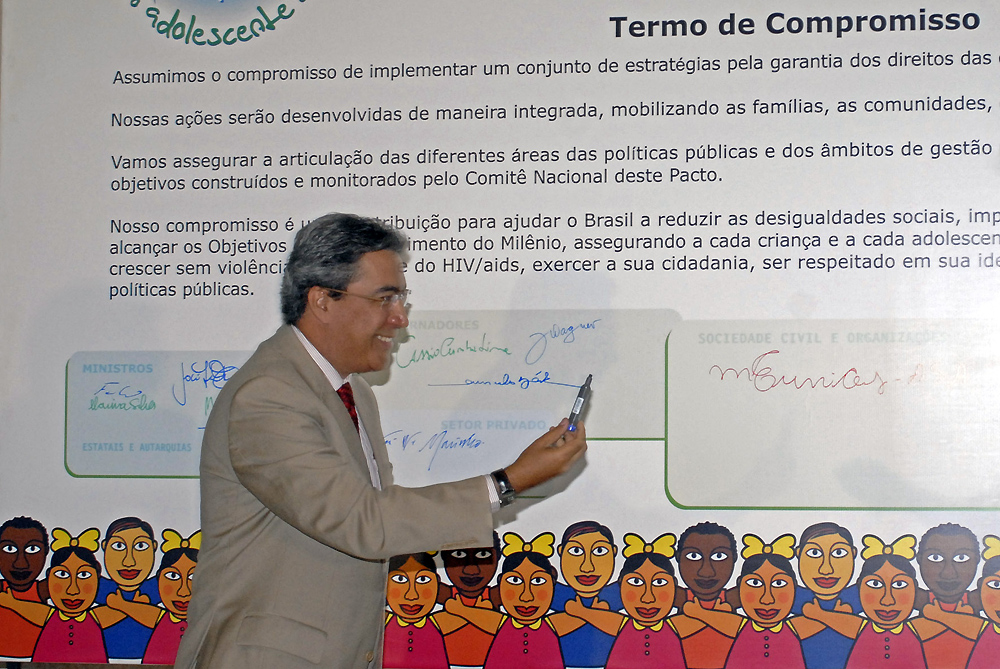 adolescente
Termo de Compromisso
Assumimos o compromisso de implementar um conjunto de estratégias pela garantia dos direitos das
Nossas ações serão desenvolvidas de maneira integrada, mobilizando as famílias, as comunidades,
Vamos assegurar a articulação das diferentes áreas das políticas públicas e dos âmbitos de gestão
objetivos construídos e monitorados pelo Comitê Nacional deste Pacto.
Nosso compromisso é para ajudar o Brasil a reduzir as desigualdades sociais,
alcançar os Objetivos do Milênio, assegurando a cada criança e a cada
crescer sem do HIV/aids, exercer a sua cidadania, ser respeitado em sua
políticas públicas.
MINISTROS
SOCIEDADE CIVIL E ORGANIZAÇÕES
SETOR PRIVADO
ESTATAIS E AUTARQUIAS